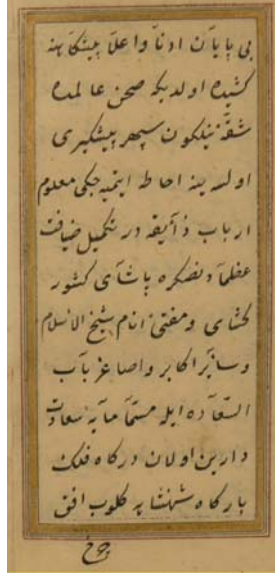 بی پایان ادنا و اعلا پیشکاهنه
کشیده اولدیکه صحن عالمده
شقه نیلکون سپهر پیشکیری
اولسه ینه احاطه ایتمیه جکی معلوم
ارباب ذایقه در تکمیل ضیافت
عظمادنصکره پاشای کشور
کشای ومفتئ انام شیخ الاسلام
وسائر اکابر واصاغر باب
السعاده ایله مسما مآبه سعادت
دارین اولان درکاه فلک
بارکاه شهنشاهیه کلوب افق
جرخ